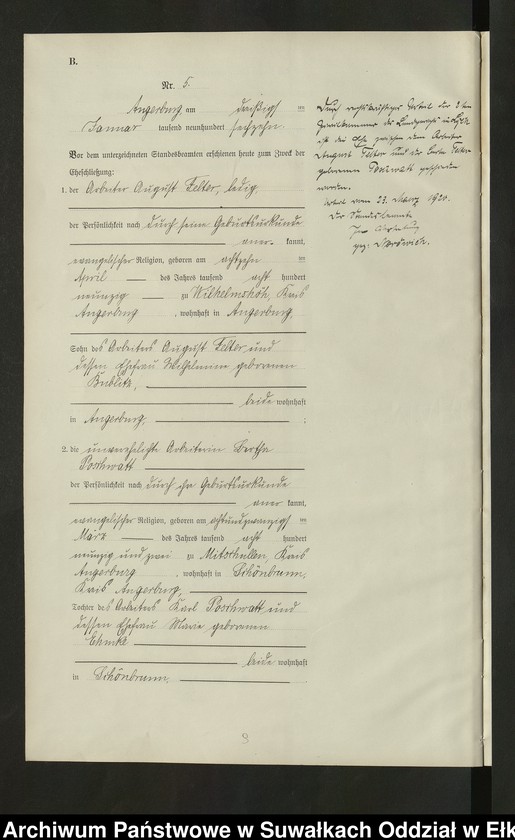 B.
Nr. 5.
Angerburg am dreißigsten
Januar tausend neunhundert sechzehn.
Vor dem unterzeichneten Standesbeamten erschienen heute zum Zweck der
Eheschließung:
1. der Arbeiter August Feltor, ledig,
der Persönlichkeit nach durch seine Geburtsurkunde
aner= kannt,
evangelischer Religion, geboren am achtzehn ten
April des Jahres tausend acht hundert
neunzig zu Wilhelmshöh, Kreis
Angerburg, wohnhaft in Angerburg,
Sohn des Arbeiters August Feltor und
dessen Ehefrau Wilhelmine geborenen
Kublitz,
beide wohnhaft
in Angerburg;
2. die unverehelichte Arbeiterin Bertha
Poschwatt
der Persönlichkeit nach durch ihre Geburtsurkunde
aner kannt,
evangelischer Religion, geboren am achtundzwanzigsten
März des Jahres tausend acht hundert
neunzig und zwei zu Mitschullen, Kreis
Angerburg, wohnhaft in Schönbrunn,
Kreis Angerburg,
Tochter des Arbeiters Karl Poschwatt und
dessen Ehefrau Marie geborenen
beide wohnhaft
in Schönbrunn.
Durch rechtskräftiges Urteil der
Zivilkammer des Landgerichts in Lyck
ist die Ehe zwischen dem Arbeiter
August Feltor und der Bertha Feltor
geborenen Poschwatt geschieden
worden.
23. März 1920.
Der Standesbeamte
In Vertretung
gez.
Archiwum Państwowe w Suwałkach Oddział w Ełk